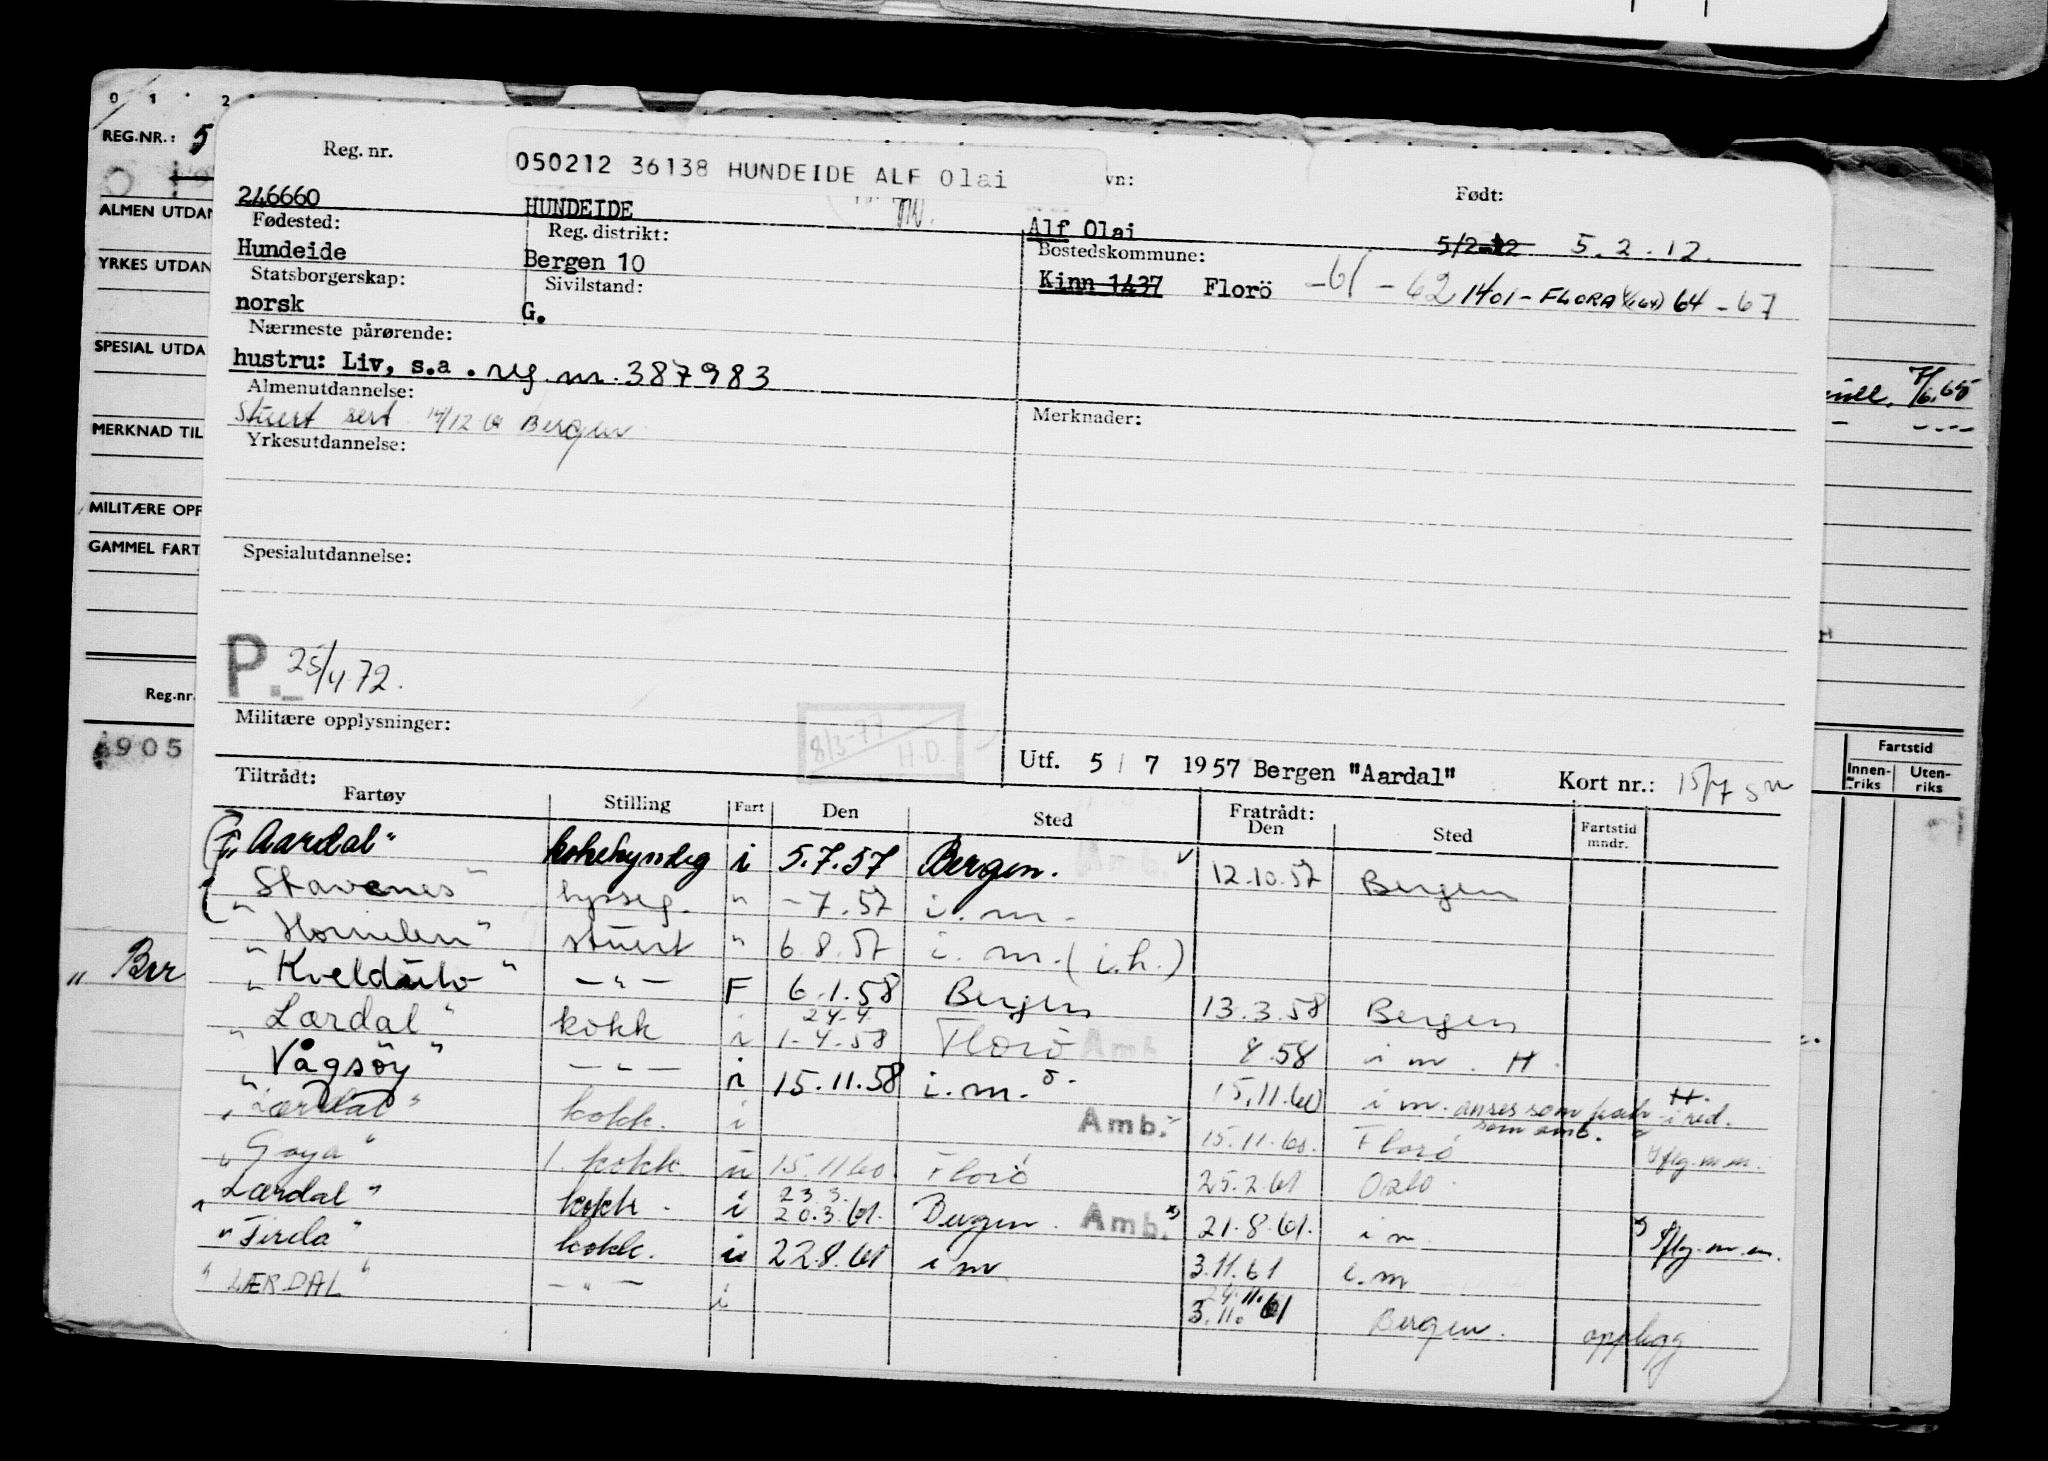 0 1 2
REG.NR.: 5
ALMEN UTDAN
YRKES UTDAN
SPESIAL UTDA
MERKNAD TIL
MILITÆRE OPP
GAMMEL FART
Reg.nr.
905
" Brr
Reg. nr.
050212 36138 HUNDEIDE ALF Olai
vn:
Født:
246660 HUNDEIDE Alf Olai 5/2-12 5.2.12.
Fødested: Reg. distrikt: Bostedskommune:
Hundeide Bergen 10 Kinn 1437 Florö -61 - 62 1401 - FLORA (1/1 64) 64 - 67
Statsborgerskap: Sivilstand:
norsk G.
Nærmeste pårørende:
hustru: Liv, s.a. reg. nr. 387983
Almenutdannelse: Merknader:
Stuert sert. 14/12 61 Bergen
Yrkesutdannelse:
Spesialutdannelse:
P. 25/4 72.
Militære opplysninger:
8/3-77 H.D.
Utf. 5 / 7 1957 Bergen "Aardal" Kort nr.: 15/7 57
Tiltrådt: Fratrådt:
Fartøy Stilling Fart Den Sted Den Sted Fartstid mndr.
"Aardal" kokekyndig i 5.7.57 Bergen. Amb. 12.10.57 Bergen
"Stavenes" bysseg. " -7.57 i. m.
"Hornelen" stuert " 6.8.57 i. m. (i.h.)
"Kveldulv" -"- F 6.1.58 Bergen 13.3.58 Bergen
"Lærdal" kokk i 24.4 1-4-58 Florö Amb 8.58 i m. H.
"Vågsöy" -"- i 15.11.58 i. m. 15.11.60 i m. anses som påm. i red. som amb. H.
"Lærdal" kokk. i Amb. 15.11.60. Florö Iflg. m.m.
"Goya" 1. kokk. u 15.11.60. Florö 25.2.61 Oslo.
"Lærdal" kokk. i 23.3. 20.3.61. Bergen. Amb. 21.8.61. i m. Iflg. m.m.
"Firda" kokk. i 22.8.61 i m 3.11.61 i. m
"LÆRDAL" -"- i 24.11. 3.11.61 Bergen. opplegg
7/6.65
Fartstid
Innen-riks Uten-riks